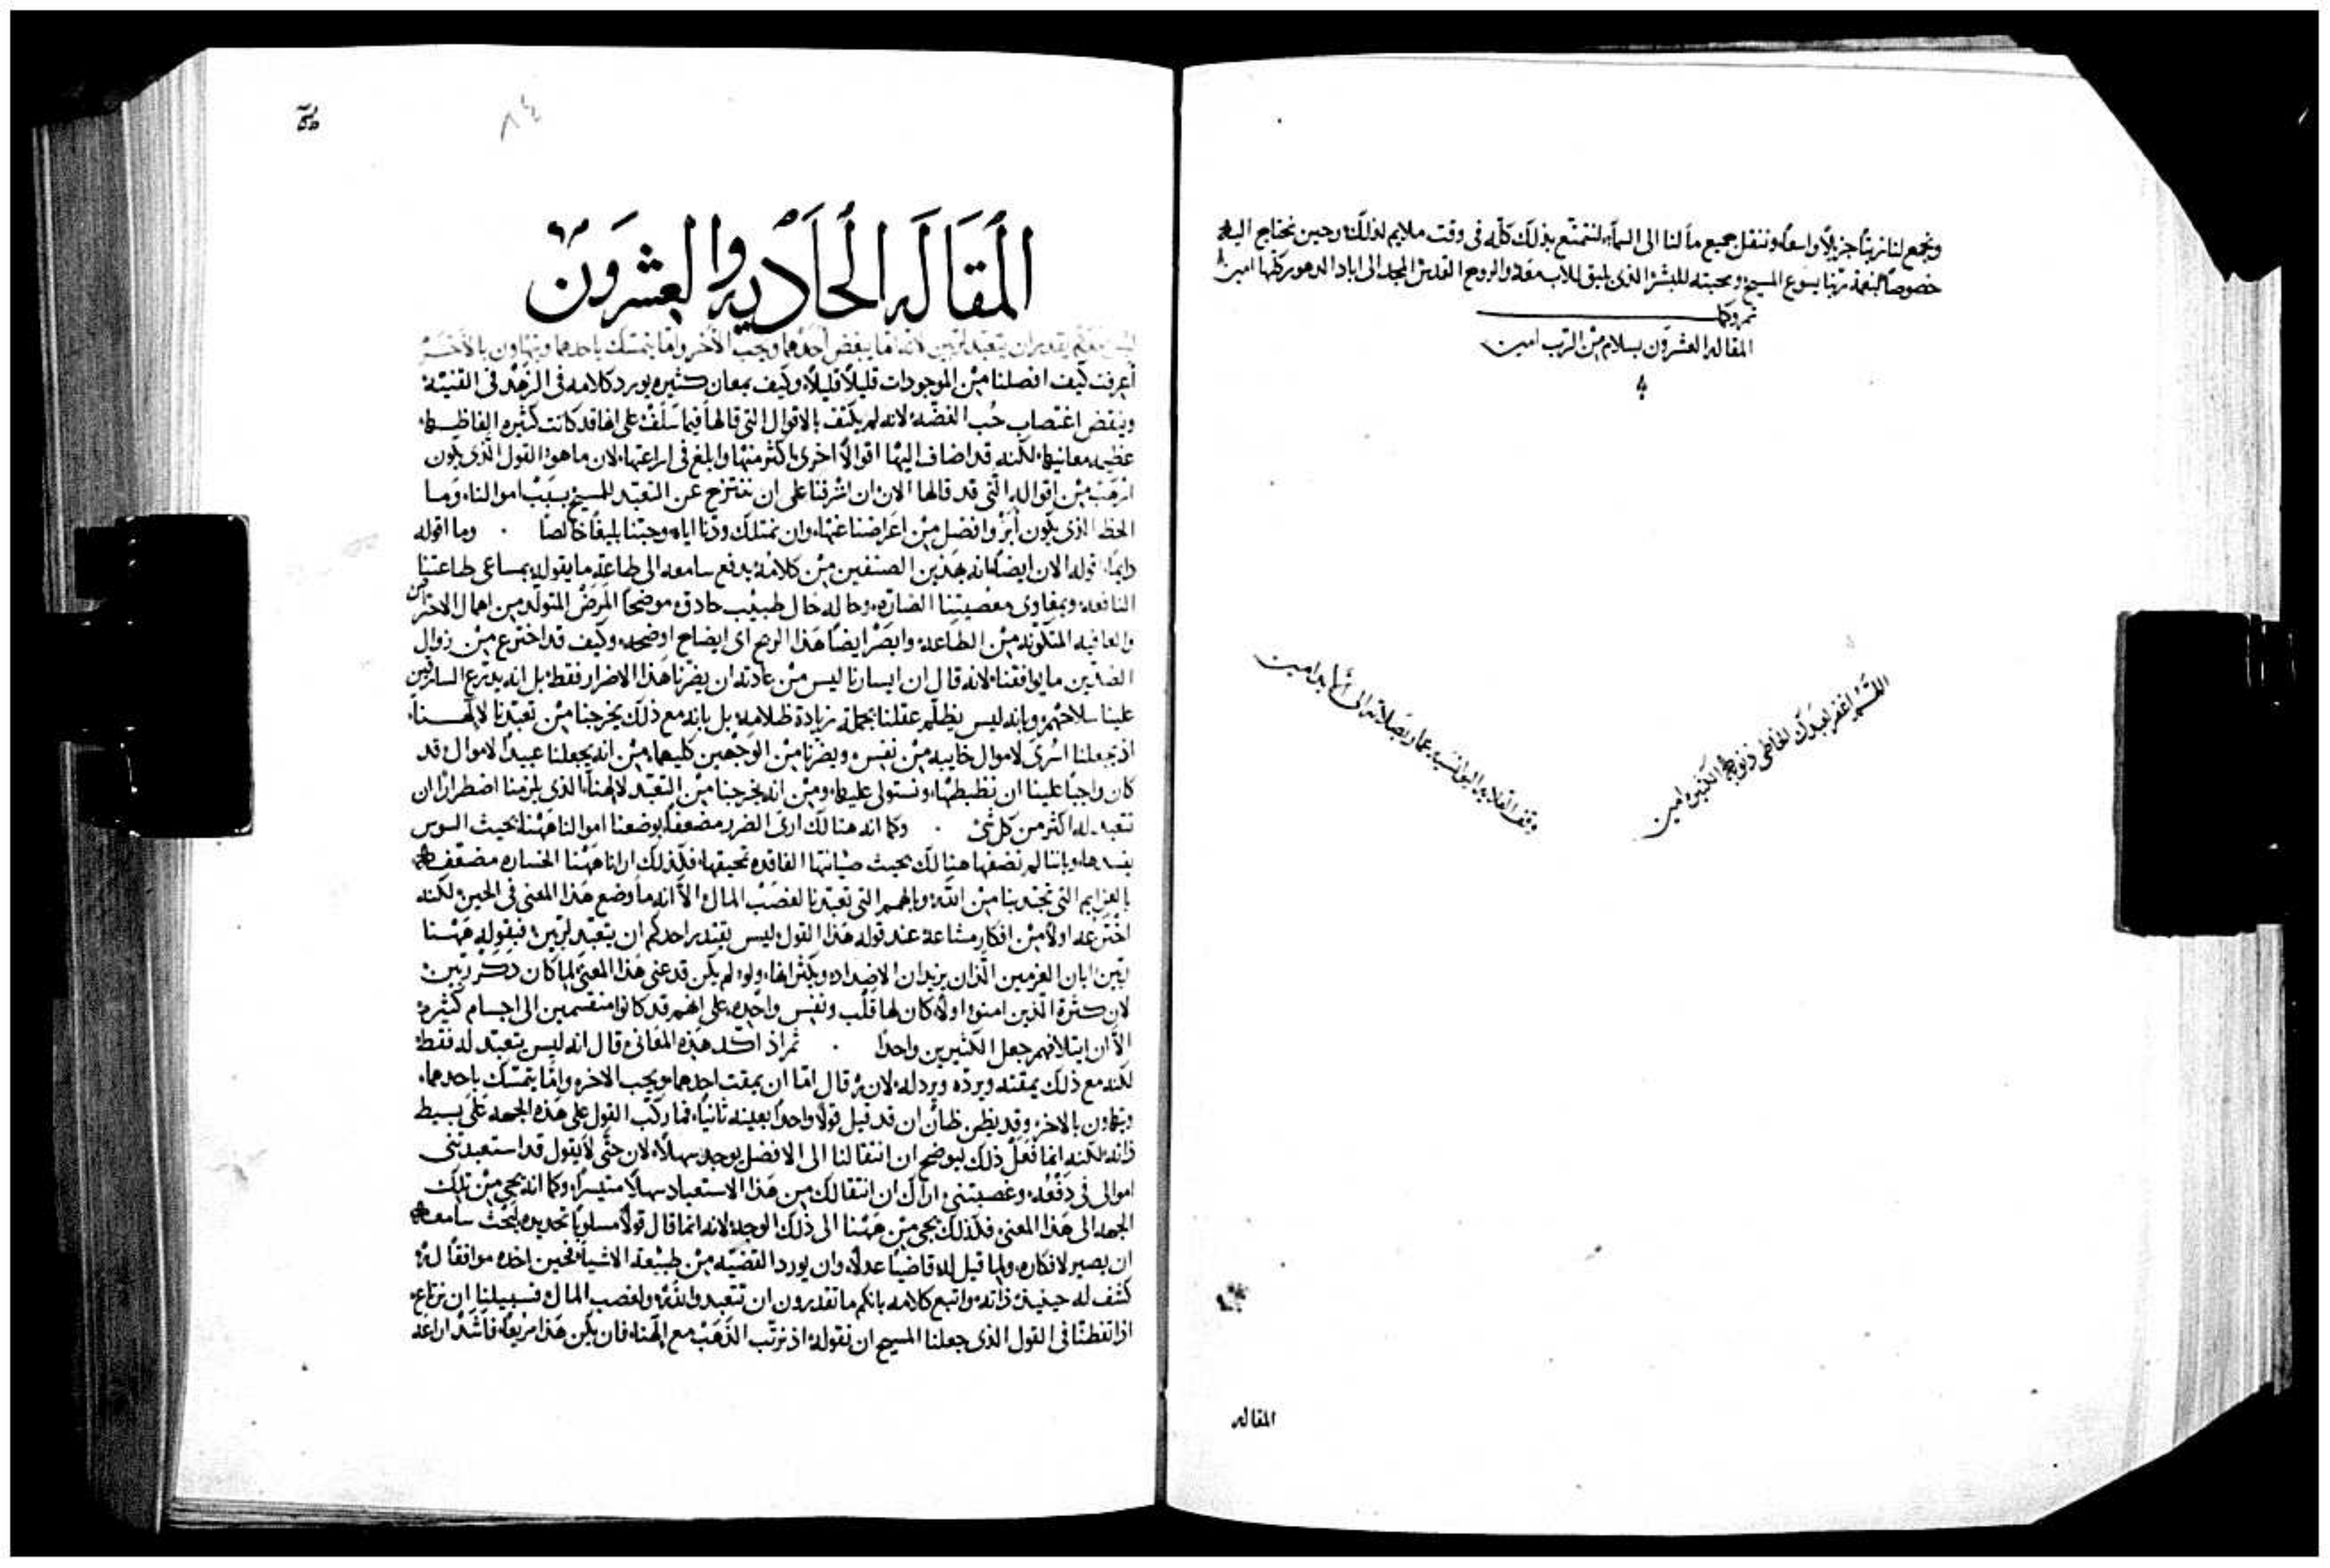 ونجمع لنا زيتًا جزيلًا واسعًا وننقل جميع ما لنا الى السمآء لنتمتع بذلك كله فى وقت ملايم لذلك وحين نحتاج اليه
خصوصًا بنعمة ربنا يسوع المسيح ومحبته للبشر الذى يليق للاب معه والروح القدس المجد الى اباد الدهور كلها امين
تمر وكمل
المقاله العشرون بسلام من الرب امين
اللهم اغفر لعبدك الخاطى ذنوبه الكثيره امين
المقاله
٨٤
المقاله الحاديه والعشرون
ليس يقدر ان يتعبد لربين لانه اما يبغض احدهما ويحب الاخر واما يتمسك باحدهما ويتهاون بالاخر
أعرفت كيف افصلنا من الموجودات قليلًا قليلًا وكيف بمعان كثيره يورد كلامه فى الزهد فى القنيه
وينقض اغتصاب حُب الفضه لانه لم يكتف بالاقوال التى قالها فيما سلف على انها قد كانت كثيره الفاظها
عظيمه معانيها لكنه قد اضاف اليها اقوالًا اخرى اكثر منها وابلغ فى ارعابها لان ما هو القول الذى يكون
ارهب من اقواله التى قد قالها الان ان اشرفنا على ان ننتزح عن التعبد للمسيح بسبب اموالنا وما
الحظ الذى يكون أبر وافضل من اعراضنا عنها وان نمتلك ودنا اياه وحبنا بليغًا خالصًا . وما اقوله
دايمًا اقوله الان ايضًا انه بهذين الصنفين من كلامه يدفع سامعه الى طاعة ما يقوله بمساعى طاعتنا
النافعه وبمغاوى معصيتنا الضاره وحاله حال طبيب حادق موضحًا المرض المتولد من اهمال الاحتراس
والعافيه المتكونه من الطاعه وابصر ايضًا هذا الربح اى ايضاح اوضحه وكيف قد اخترع من زوال
الضدين ما يوافقنا لانه قال ان ايسارنا ليس من عادته ان يضرنا هذا الاضرار فقط بل انه يدرع السارقين
علينا سلاحهم وبانه ليس يظلم عقلنا بجملة زيادة ظلامه بل بانه مع ذلك يخرجنا من تعبدنا لالهنا
اذ يجعلنا اسرى لاموال خايبه من نفس ويضرنا من الوجهين كليهما من انه يجعلنا عبيدًا لاموال قد
كان واجبًا علينا ان نظبطها ونستولى عليها ومن انه يخرجنا من التعبد لالهنا الذى يلزمنا اضطرارًا ان
نتعبد له اكثر من كل شى . وكما انه هنالك ارى الضرر مضعفًا بوضعنا اموالنا ههنا بحيث السوس
يفسدها وباننا لم نضعها هنالك بحيث صيانتها الفاقده تحيقها فكذلك ارانا ههنا الخساره مضعفه
بالعزايم التى تجتدبنا من الله وبالهمم التى تعبدنا لغصب المال الا انه ما وضع هذا المعنى فى الحين لكنه
اخترعه اولًا من افكار مشاعة عند قوله هذا القول ليس يقتدر احدكم ان يتعبد لربين فبقوله ههنا
ربين ابان العزمين الذان يزيدان الاضداد ويكثرانها ولو لم يكن قد عنى هذا المعنى لما كان ذكر ربين
لان كثرة الذين امنوا اولًا كان لها قلب ونفس واحده على انهم قد كانوا منقسمين الى اجسام كثيره
الا ان ايتلافهم جعل الكثيرين واحدًا . ثم اذ اكد هذه المعانى قال انه ليس يتعبد له فقط
لكنه مع ذلك يمقته ويرده ويردله لانه قال اما ان يمقت احدهما ويحب الاخر واما يتمسك باحدهما
ويتهاون بالاخر وقد يظن ظان ان قد قيل قولًا واحدًا بعينه ثانيًا فما ركب القول على هذه الجهه على بسيط
ذاته لكنه انما فعل ذلك ليوضح ان انتقالنا الى الافضل يوجد سهلًا لان حتى لا يقول قد استعبدتنى
اموالى فى دفعه وغصبتنى اراك ان انتقالك من هذا الاستعباد سهلًا متيسرًا وكما انه يجى من تلك
الجهه الى هذا المعنى فكذلك يجى من ههنا الى ذلك الوجه لانه انما قال قولًا مسلوبًا تحديده ليحث سامعه
ان يصير لافكاره ولما قيل له قاضيًا عدلًا وان يورد القضيه من طبيعة الاشيا فحين اخده موافقًا له
كشف له حينيذ ذاته واتبع كلامه بانكم ما تقدرون ان تتعبدوا لله ولغصب المال فسبيلنا ان نرتاع
اذا تفطنا فى القول الذى جعلنا المسيح ان نقوله اذ نرتب الذهب مع الهنا فان يكن هذا مريعًا فاشد اراعة